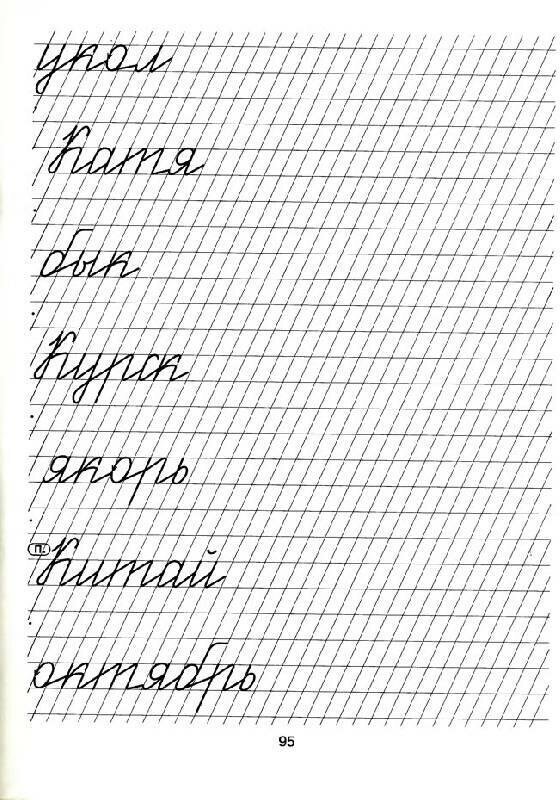 укол
Катя
бык
Курск
якорь
Китай
октябрь
95